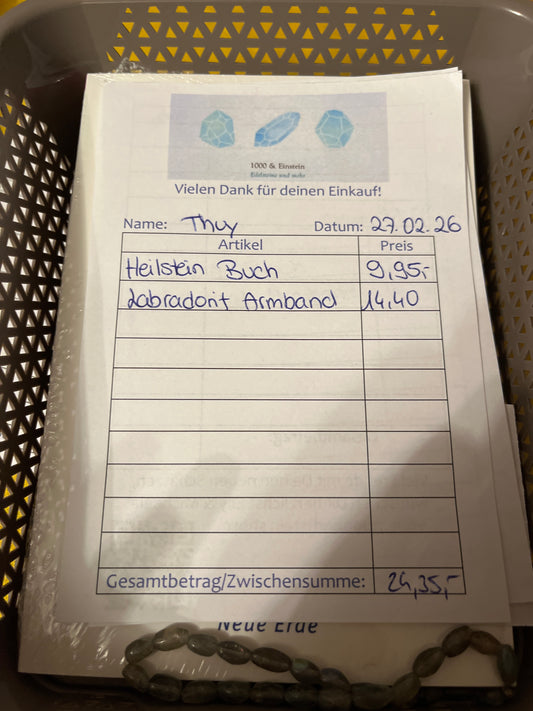 1000 & Einstein
Edelsteine und mehr
Vielen Dank für deinen Einkauf!
Name: Thuy Datum: 27.02.26
Artikel Preis
Heilstein Buch 9,95,-
Labradorit Armband 14,40
Gesamtbetrag/Zwischensumme: 24,35,-
Neue Erde